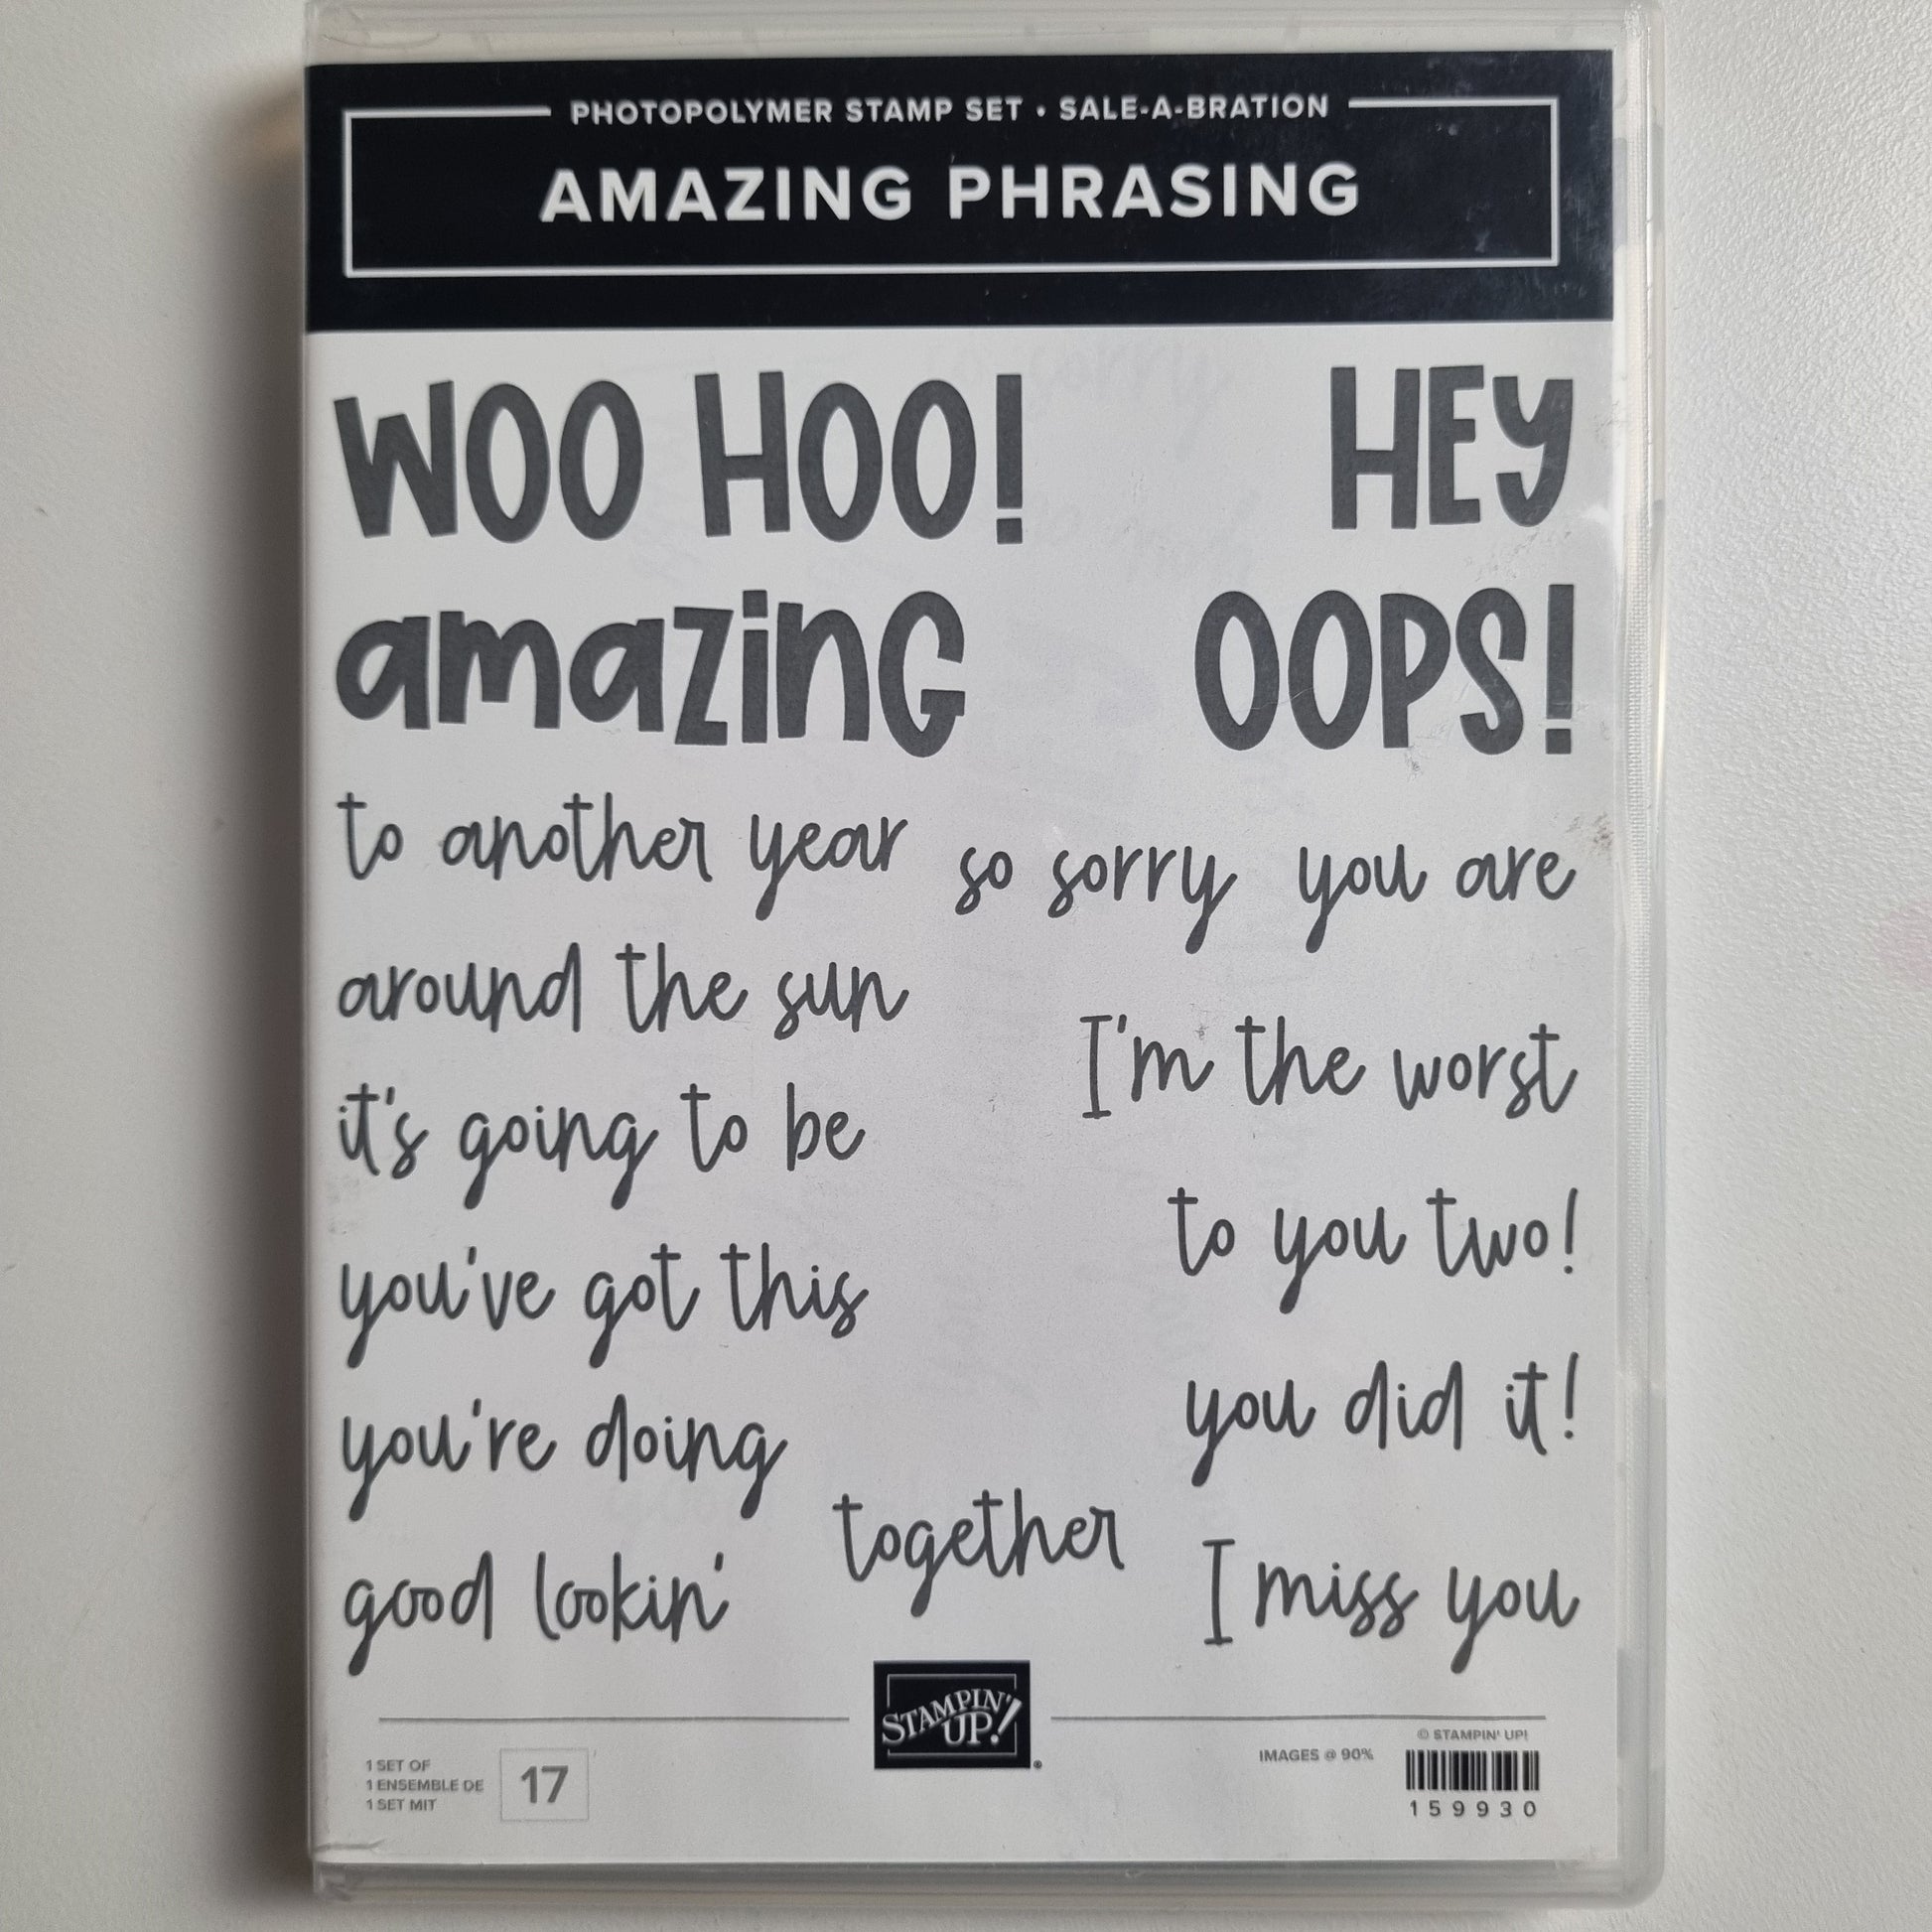 PHOTOPOLYMER STAMP SET • SALE-A-BRATION
AMAZING PHRASING
WOO HOO!
HEY
amazinG
OOPS!
to another year
so sorry
you are
around the sun
I'm the worst
it's going to be
to you two!
you've got this
you did it!
you're doing
together
good lookin'
I miss you
STAMPIN' UP!®
1 SET OF
1 ENSEMBLE DE
1 SET MIT
17
IMAGES @ 90%
© STAMPIN' UP!
159930